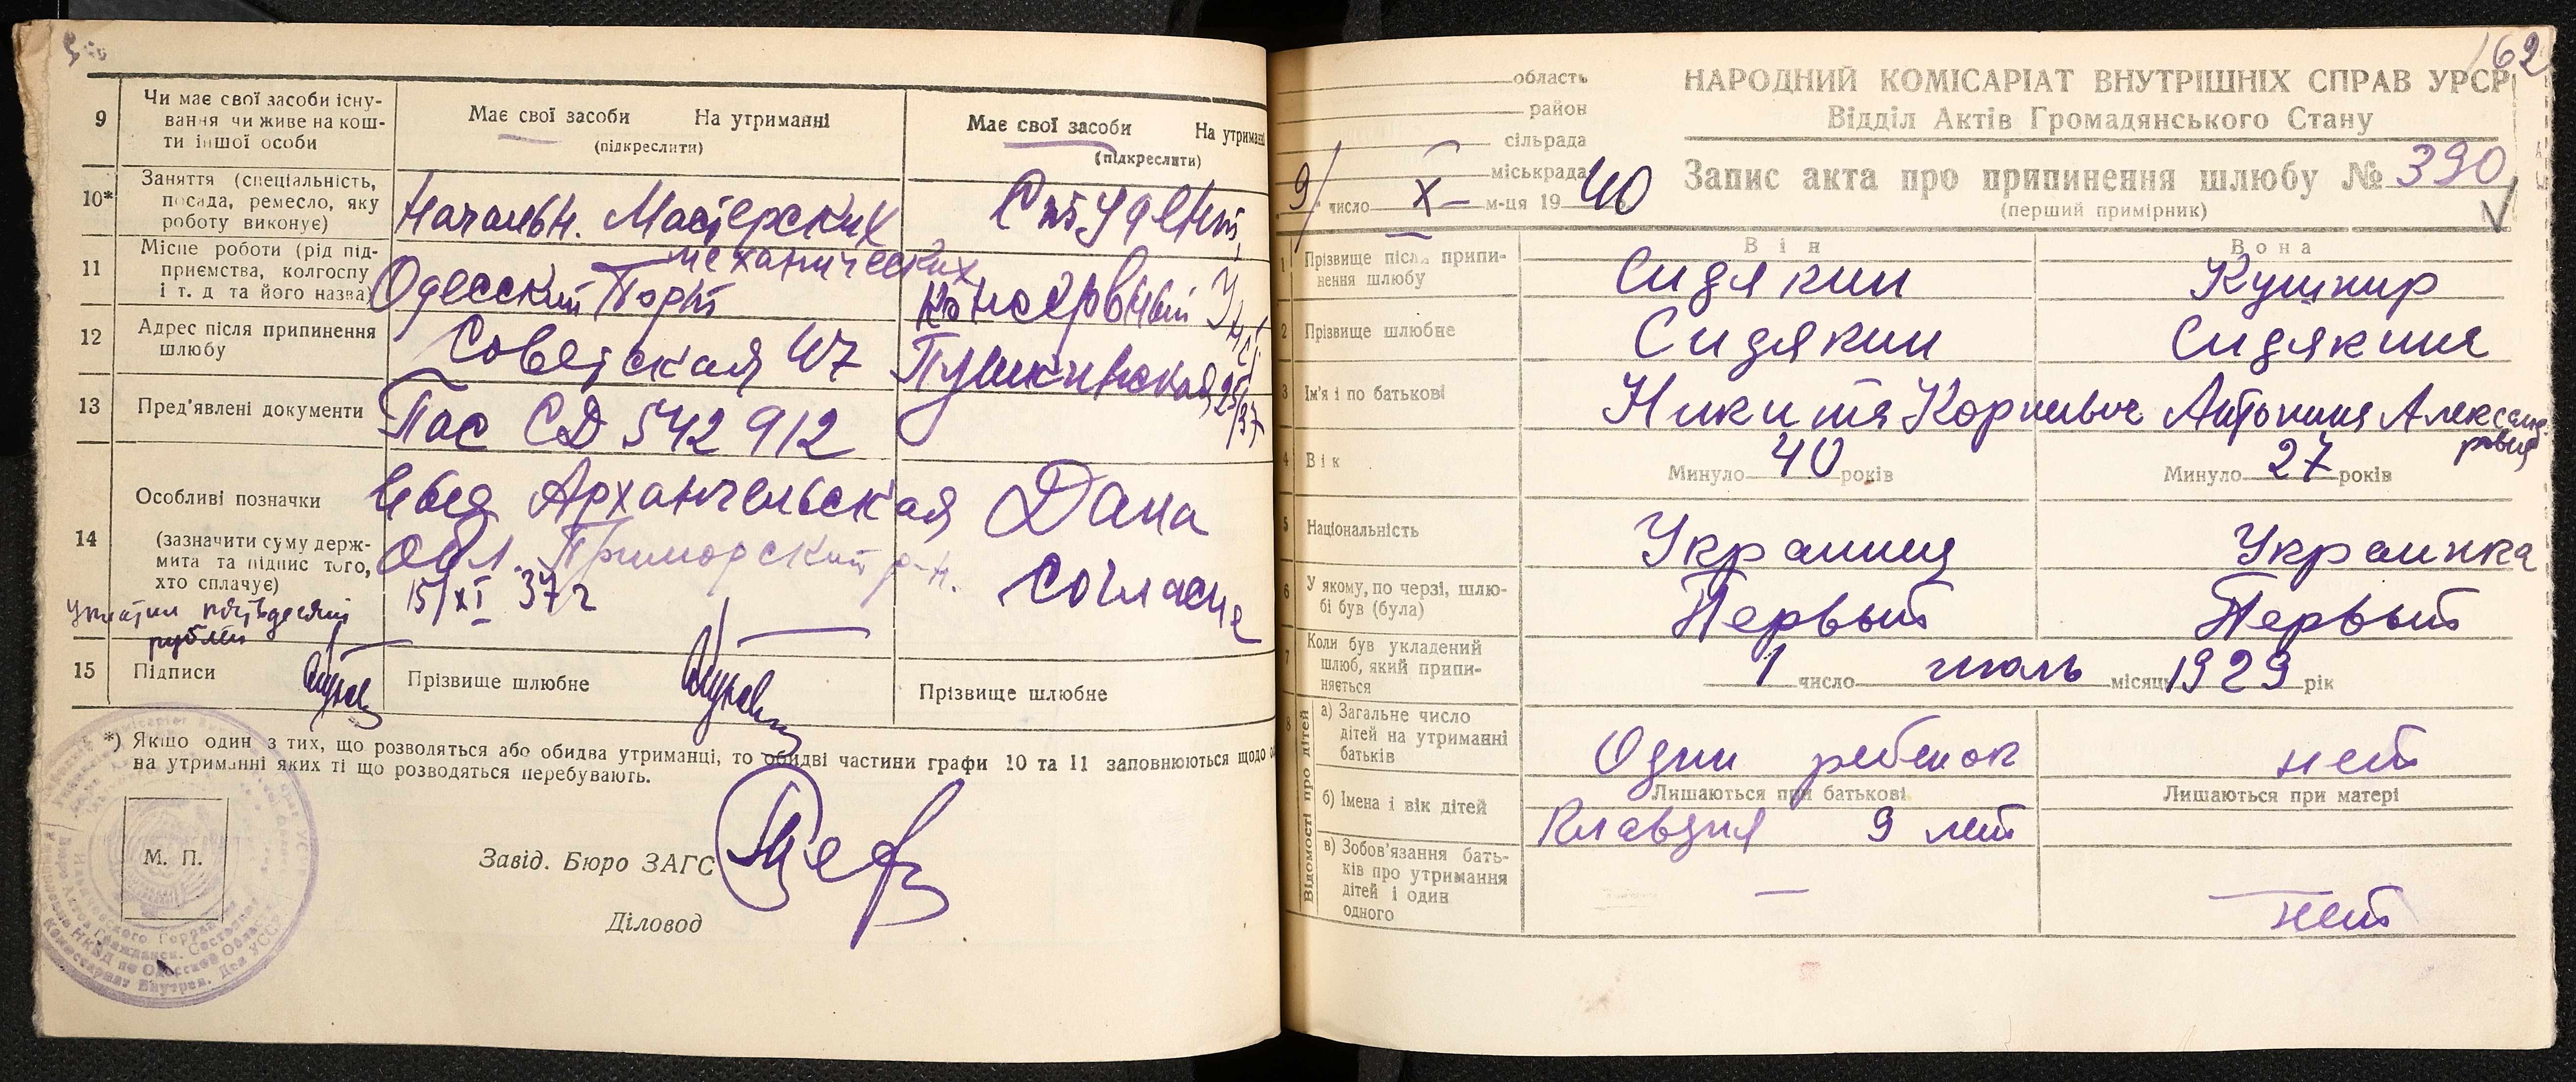 9
Чи має свої засоби існу-
вання чи живе на кош-
ти іншої особи
Має свої засоби На утриманні
(підкреслити)
Має свої засоби На утриманні
(підкреслити)
10*
Заняття (спеціальність,
посада, ремесло, яку
роботу виконує)
Начальн. Мастерских
механических
Студент
11
Місце роботи (рід під-
приємства, колгоспу
і т. д та його назва)
Одесский Порт
Консервный
12
Адрес після припинення
шлюбу
Советская 47
Пушкинская 25/37
13
Пред'явлені документи
Пас СД 542 912
14
Особливі позначки
(зазначити суму держ-
мита та підпис того,
хто сплачує)
Уплатил пятьдесят
рублей
выд Архангельская
обл. Приморский р-н.
15/XI 37 г
Дана
согласие
15
Підписи
Прізвище шлюбне
Прізвище шлюбне
*) Якщо один з тих, що розводяться або обидва утриманці, то обидві частини графи 10 та 11 заповнюються щодо
на утриманні яких ті що розводяться перебувають.
М. П.
Завід. Бюро ЗАГС
Діловод
162
область
район
сільрада
міськрада
9/ число X м-ця 1940
НАРОДНИЙ КОМІСАРІАТ ВНУТРІШНІХ СПРАВ УРСР
Відділ Актів Громадянського Стану
Запис акта про припинення шлюбу № 390
(перший примірник)
Він
Вона
1
Прізвище після припи-
нення шлюбу
Сидякин
Кушнир
2
Прізвище шлюбне
Сидякин
Сидякина
3
Ім'я і по батькові
Никита Корнеевич
Антонина Александ
ровна
4
Вік
Минуло 40 років
Минуло 27 років
5
Національність
Украинец
Украинка
6
У якому, по черзі, шлю-
бі був (була)
Первый
Первый
7
Коли був укладений
шлюб, який припи-
няється
1 число июль місяць 1929 рік
8
Відомості про дітей
а) Загальне число
дітей на утриманні
батьків
Один ребенок
нет
б) Імена і вік дітей
Лишаються при батькові
Лишаються при матері
Клавдия 9 лет
в) Зобов'язання бать-
ків про утримання
дітей і один
одного
—
нет